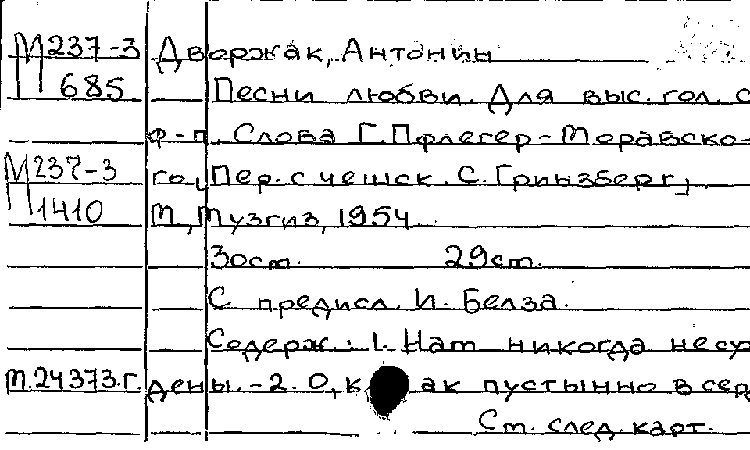 М 237-3 Дворжак, Антонин
685 Песни любви. Для выс. гол. с
ф-п. Слова Г. Пфлегер-Моравско-
М 237-3 го, Пер. с чешск. С. Гринзберг,
1410 М, Музгиз, 1954.
30 ст. 29 ст.
С предисл. И. Бэлза.
Содерж.: 1. Нам никогда не су
т.24373.г. дены. - 2. О, к ак пустынно в сер
См. след. карт.